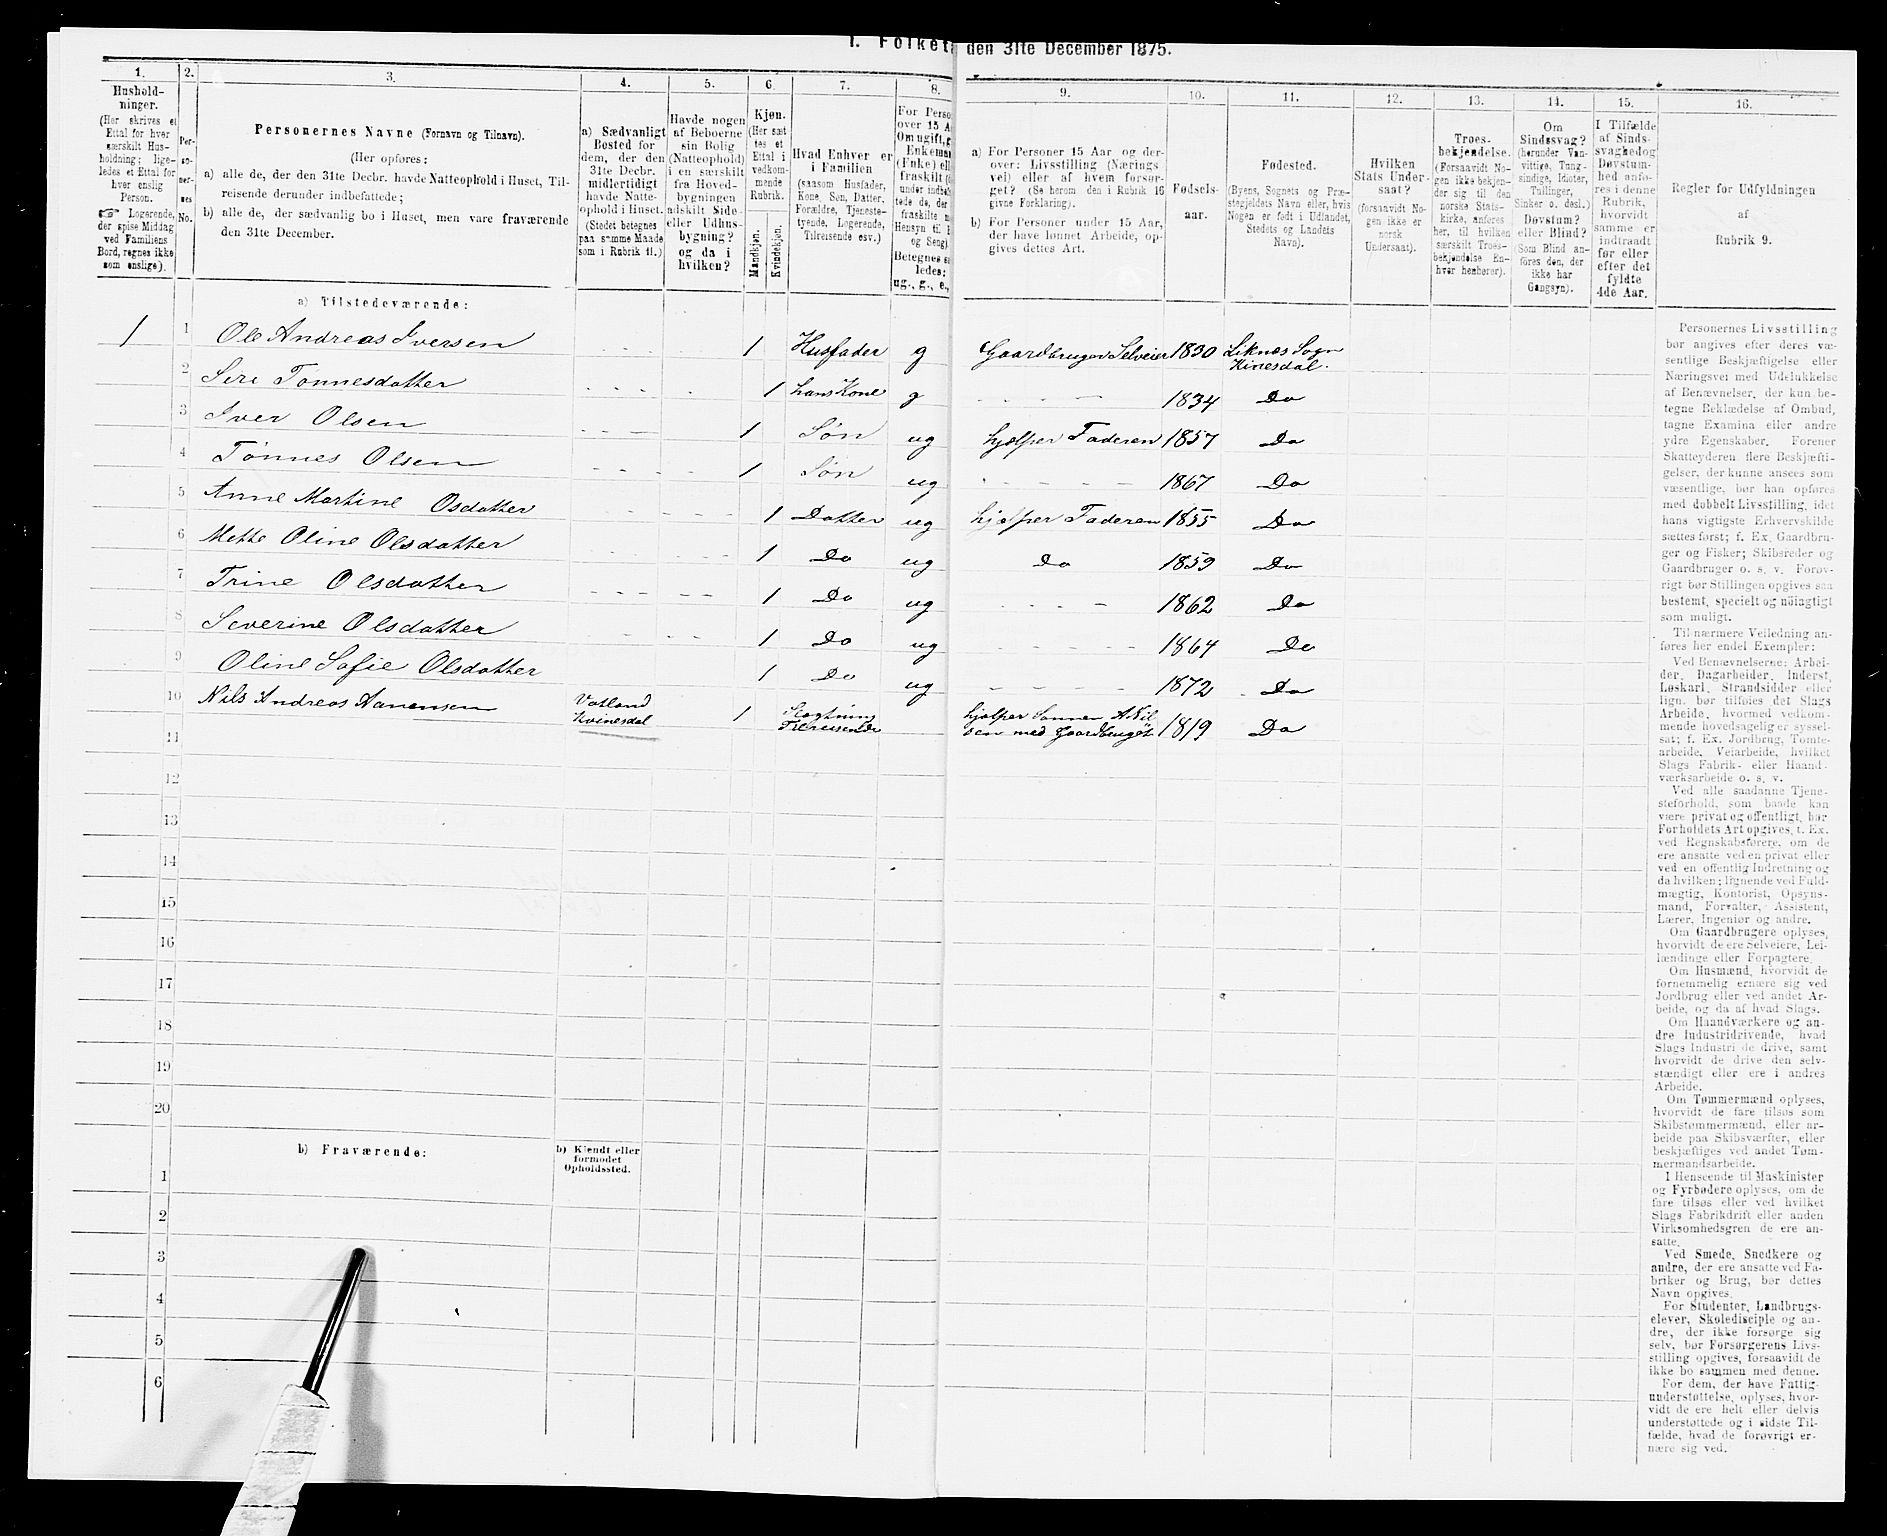 I. Folket den 31te December 1875.
1. 2. 3. 4. 5. 6. 7. 8. 9. 10. 11. 12. 13. 14. 15. 16.
Hushold-
ninger.
(Her skrives et
Ettal for hver
særskilt Hus-
holdning; lige-
ledes et Ettal for
hver enslig
Person.
☞ Logerende,
der spise Middag
ved Familiens
Bord, regnes ikke
som enslige).
Per-
so-
ner-
nes
No.
Personernes Navne (Fornavn og Tilnavn).
(Her opføres:
a) alle de, der den 31te Decbr. havde Natteophold i Huset, Til-
reisende derunder indbefattede;
b) alle de, der sædvanlig bo i Huset, men vare fraværende
den 31te December.
a) Sædvanligt
Bosted for
dem, der den
31te Decbr.
midlertidigt
havde Natte-
ophold i Huset.
(Stedet betegnes
paa samme Maade
som i Rubrik 11.)
Havde nogen
af Beboerne
sin Bolig
(Natteophold)
i en særskilt
fra Hoved-
bygningen
adskilt Side-
eller Udhus-
bygning?
og da i
hvilken?
Kjøn.
(Her sæt
tes et
Ettal i
vedkom-
mende
Rubrik.
Mandkjøn.
Kvindekjøn.
Hvad Enhver er
i Familien
(saasom Husfader,
Kone, Søn, Datter,
Forældre, Tjeneste-
tyende, Logerende,
Tilreisende osv.)
For Perso
over 15 A
Om ugift, g
Enkema
(Enke) ell
fraskilt (
under indbe
tede de, der
fraskilte m
Hensyn til B
og Seng).
Betegnes sa
ledes:
ug., g., e.,
a) For Personer 15 Aar og der-
over: Livsstilling (Nærings-
vei) eller af hvem forsør-
get? (Se herom den i Rubrik 16
givne Forklaring).
b) For Personer under 15 Aar,
der have lønnet Arbeide, op-
gives dettes Art.
Fødsels-
aar.
Fødested.
(Byens, Sognets og Præ-
stegjeldets Navn eller, hvis
Nogen er født i Udlandet,
Stedets og Landets
Navn).
Hvilken
Stats Under-
saat?
(forsaavidt No-
gen ikke er
norsk
Undersaat).
Troes-
bekjendelse.
(Forsaavidt No-
gen ikke bekjen-
der sig til den
norske Stats-
kirke, anføres
her, til hvilken
særskilt Troes-
bekjendelse En-
hver henhører).
Om
Sindssvag?
(herunder Van-
vittige, Tung-
sindige, Idioter,
Tullinger,
Sinker o. desl.)
Døvstum?
eller Blind?
(Som Blind an-
føres den, der
ikke har
Gangsyn).
I Tilfælde
af Sinds-
svaghed og
Døvstum-
hed anfø-
res i denne
Rubrik,
hvorvidt
samme er
indtraadt
før eller
efter det
fyldte
4de Aar.
Regler for Udfyldningen
af
Rubrik 9.
a) Tilstedeværende:
1 1 Ole Andreas Iversen 1 Husfader g Gaardbruger Selveier 1830 Liknes Sogn
Kinesdal.
2 Siri Tonnesdatter 1 hans Kone g 1834 Do
3 Iver Olsen 1 Søn ug hjælper Faderen 1857 Do
4 Tönnes Olsen 1 Søn ug 1867 Do
5 Anne Martine Osdatter 1 Datter ug hjælper Faderen 1855 Do
6 Mette Oline Olsdatter 1 Do ug do 1859 Do
7 Trine Olsdatter 1 Do ug 1862 Do
8 Severine Olsdatter 1 Do ug 1864 Do
9 Oline Sofie Olsdatter 1 Do ug 1872 Do
10 Nils Andreas Aanensen Vatland
Kvinesdal 1 hjælper Sønnen A Nil
sen med Gaardbruget 1819 Do
11
12
13
14
15
16
17
18
19
20
b) Fraværende:
b) Kjendt eller
formodet
Opholdssted.
1
2
3
4
5
6
Personernes Livsstilling
bør angives efter deres væ-
sentlige Beskjæftigelse eller
Næringsvei med Udelukkelse
af Benævnelser, der kun be-
tegne Beklædelse af Ombud,
tagne Examina eller andre
ydre Egenskaber. Forener
Skatteyderen flere Beskjæfti-
gelser, der kunne ansees som
væsentlige, bør han opføres
med dobbelt Livsstilling, idet
hans vigtigste Erhvervskilde
sættes først; f. Ex. Gaardbru-
ger og Fisker; Skibsreder og
Gaardbruger o. s. v. Forøv-
rigt bør Stillingen opgives saa
bestemt, specielt og nöiagtigt
som muligt.
Til nærmere Veiledning an-
føres her endel Exempler:
Ved Benævnelserne: Arbei-
der, Dagarbeider, Inderst,
Løskarl, Strandsidder eller
lign. bør tilføies det Slags
Arbeide, hvormed vedkom-
mende hovedsagelig er syssel-
sat; f. Ex. Jordbrug, Tomte-
arbeide, Veiarbeide, hvilket
Slags Fabrik- eller Haand-
værksarbeide o. s. v.
Ved alle saadanne Tjene-
steforhold, som baade kan
være privat og offentligt, bør
Forholdets Art opgives, t. Ex.
ved Regnskabsførere, om de
ere ansatte ved en privat eller
ved en offentlig Indretning og
da hvilken; lignende ved Fuld-
mægtig, Kontorist, Opsyns-
mand, Forvalter, Assistent,
Lærer, Ingeniør og andre.
Om Gaardbrugere oplyses,
hvorvidt de ere Selveiere, Lei-
lændinge eller Forpagtere.
Om Husmænd, hvorvidt de
fornemmelig ernære sig ved
Jordbrug eller ved andet Ar-
beide, og da af hvad Slags.
Om Haandværkere og an-
dre Industridrivende, hvad
Slags Industri de drive, samt
hvorvidt de drive den selv-
stændigt eller ere i andres
Arbeide.
Om Tømmermænd oplyses,
hvorvidt de fare tilsøs som
Skibstømmermænd, eller ar-
beide paa Skibsværfter, eller
beskjæftiges ved andet Tøm-
mermandsarbeide.
I Henseende til Maskinister
og Fyrbødere oplyses, om de
fare tilsøs eller ved hvilket
Slags Fabrikdrift eller anden
Virksomhedsgren de ere an-
satte.
Ved Smede, Snedkere og
andre, der ere ansatte ved Fa-
briker og Brug, bør dettes
Navn opgives.
For Studenter, Landbrugs-
elever, Skoledisciple og an-
dre, der ikke forsørge sig
selv, bør Forsørgerens Livs-
stilling opgives, forsaavidt de
ikke bo sammen med denne.
For dem, der have Fattig-
understøttelse, oplyses, hvor-
vidt de ere helt eller delvis
understøttede og i sidste Til-
fælde, hvad de forøvrigt er-
nære sig ved.